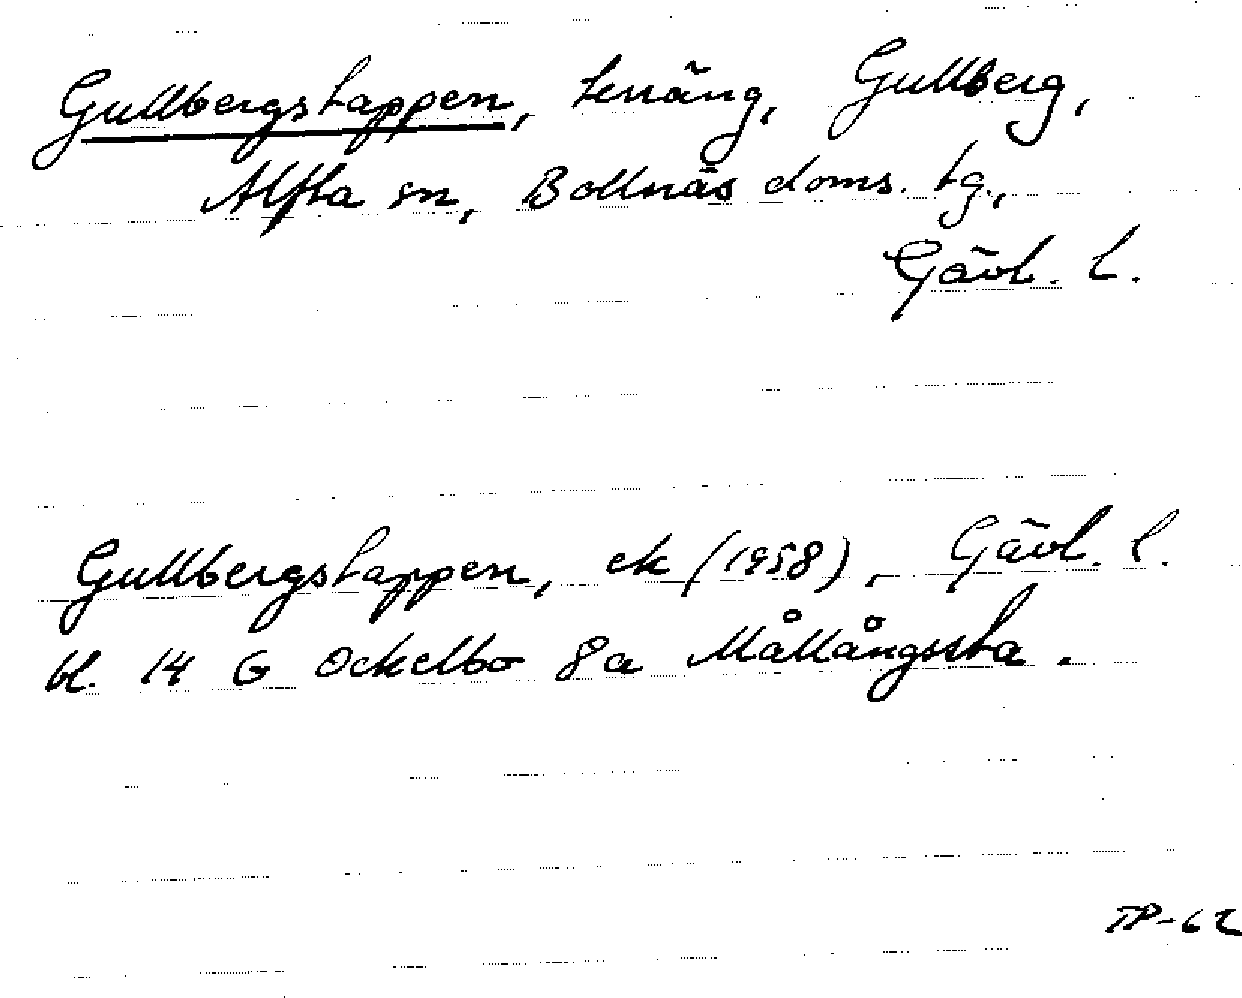 Gullbergstappen, terräng, Gullberg,
Alfta sn, Bollnäs doms. tg.,
Gävl. l.
Gullbergstappen, ek (1958), Gävl. l.
bl. 14 G Ockelbo 8a Mållångssta.
TP-62